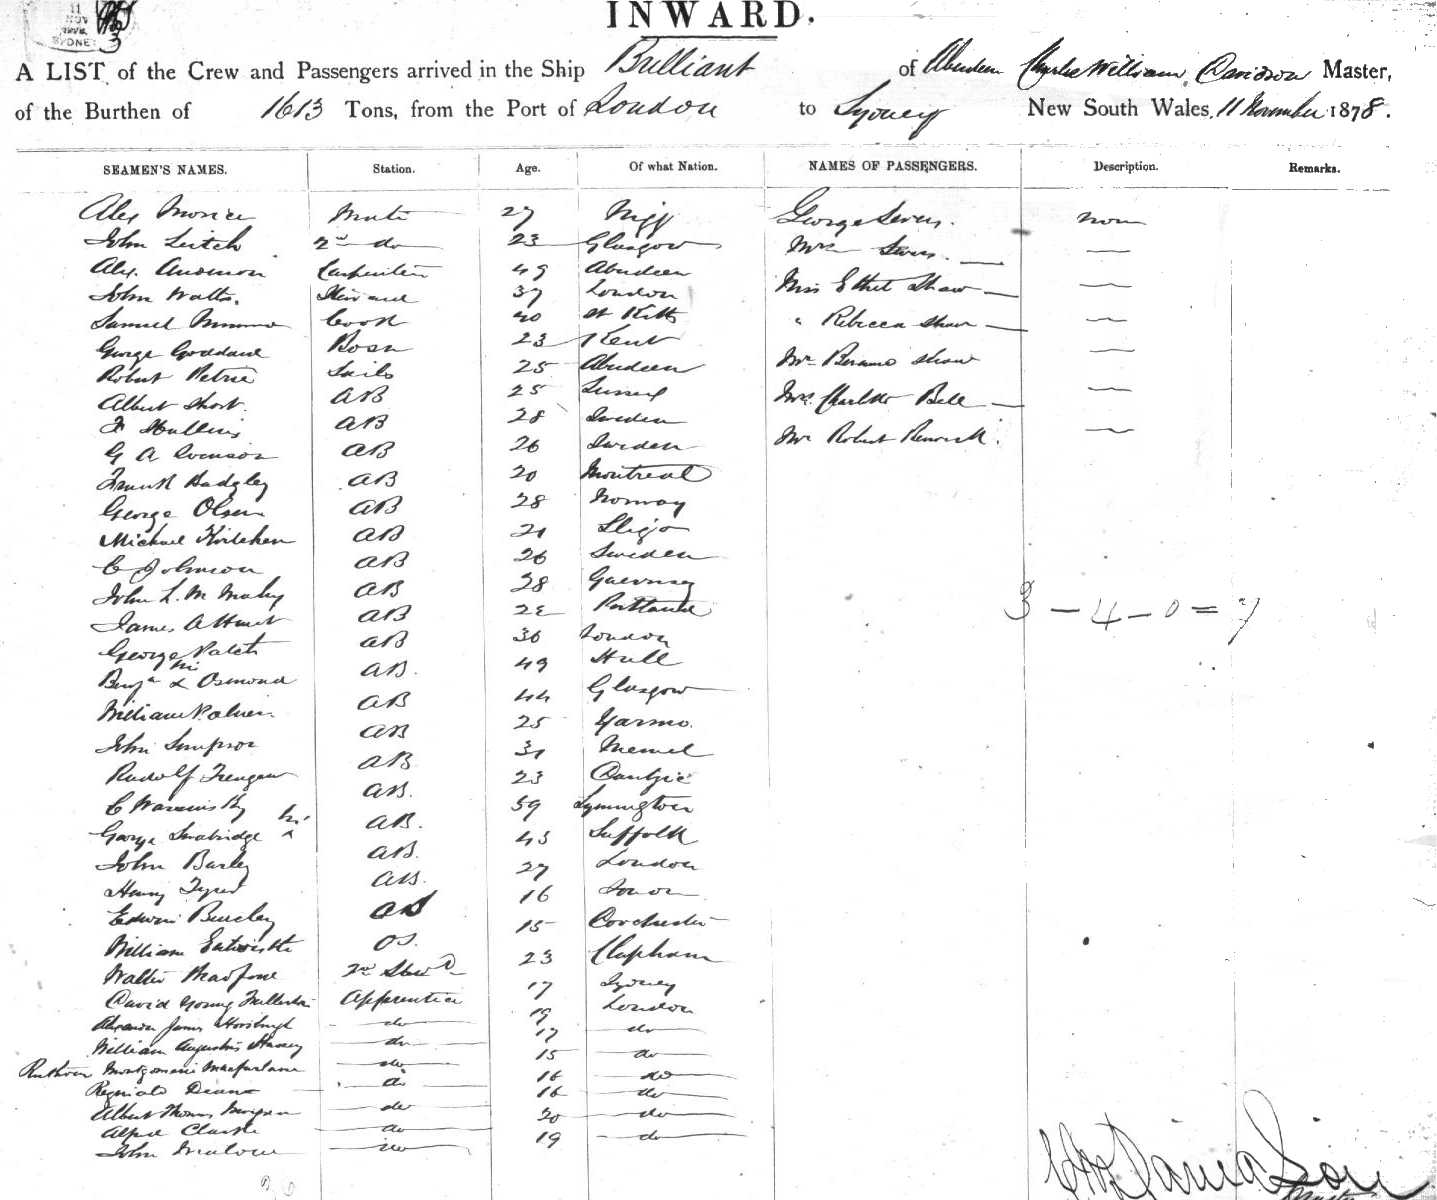 11
NOV
1878
SYDNEY
3
INWARD.
A LIST of the Crew and Passengers arrived in the Ship Brilliant of Aberdeen Charles William Davidson Master,
of the Burthen of 1613 Tons, from the Port of London to Sydney New South Wales, 11 November 1878.
SEAMEN'S NAMES. Station. Age. Of what Nation. NAMES OF PASSENGERS. Description. Remarks.
Alex Morice Mate 27 Nigg George Severs.
John Leitch 2nd do 23 Glasgow Mrs Severs.
Alex. Anderson Carpenter 49 Aberdeen Miss Ethel Shaw
John Watts. Steward 37 London " Rebecca Shaw
Samuel Cook 40 St Kitts Mr Shaw
George Goddard Bosn 23 Kent Mrs Charlotte Bell
Robert Petrie Sails 25 Aberdeen Mr Robert Renwick.
Albert Short. AB 25 Sussex
F Mullins AB 28 Sweden
G A Svenson AB 26 Sweden
Frank Hadgley AB 20 Montreal
George Olsen AB 28 Norway
Michael AB 21 Sligo
C Johnson AB 26 Sweden
John L. M Mahy AB 28 Guernsey
James A Hunt AB 22 Portland
George Patch AB 36 London
Benjn Osmond AB. 49 Hull
William Palmer AB 44 Glasgow
John Simpson AB 25 Yarmo.
Rudolf AB. 31 Memel
C AB. 23 Dantzic
George AB. 59 Lymington
John Burley AB. 43 Suffolk
Henry AB. 27 London
Edwin Burley AB 16
William Entwistle OS. 15
Walter 2nd Stewd 23 Clapham
David Young Apprentice 17 Sydney
Alexander James Horsburgh do 19 London
William Augustus Harvey do 17 do
Ruthven Montgomerie Macfarlane do 15 do
Reginald Deane do 16 do
Albert Thomas do 16 do
Alfred Clarke do 20 do
John do 19 do
3 - 4 - 0 = 7